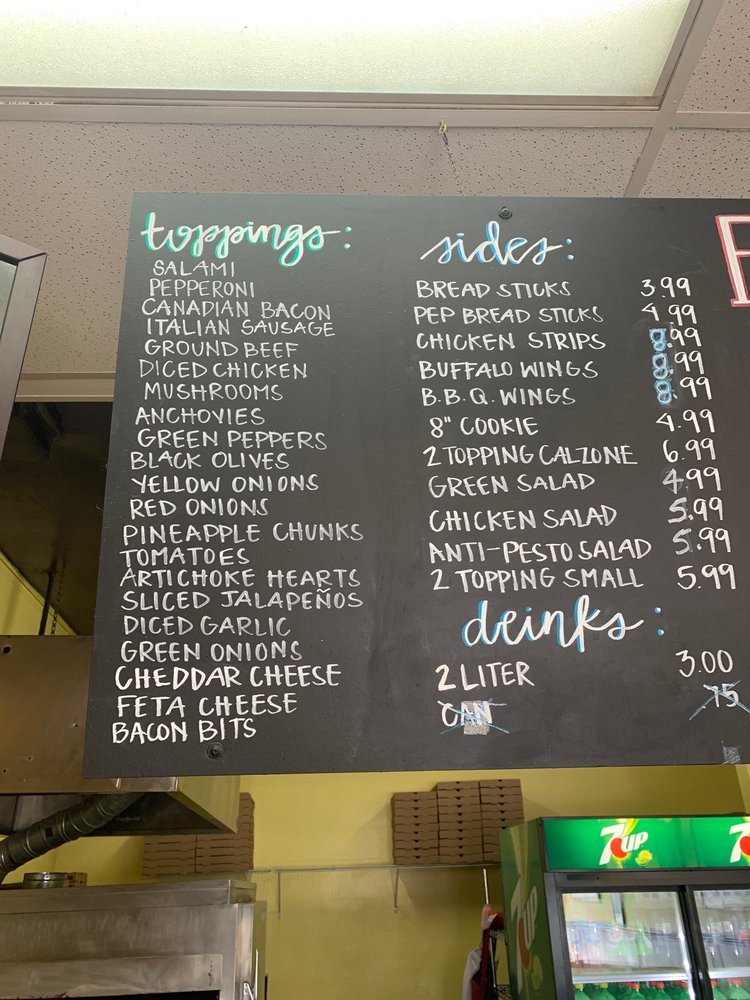 toppings:
SALAMI
PEPPERONI
CANADIAN BACON
ITALIAN SAUSAGE
GROUND BEEF
DICED CHICKEN
MUSHROOMS
ANCHOVIES
GREEN PEPPERS
BLACK OLIVES
YELLOW ONIONS
RED ONIONS
PINEAPPLE CHUNKS
TOMATOES
ARTICHOKE HEARTS
SLICED JALAPEÑOS
DICED GARLIC
GREEN ONIONS
CHEDDAR CHEESE
FETA CHEESE
BACON BITS
sides:
BREAD STICKS 3.99
PEP BREAD STICKS 4.99
CHICKEN STRIPS 8.99
BUFFALO WINGS 8.99
B.B.Q. WINGS 8.99
8" COOKIE 4.99
2 TOPPING CALZONE 6.99
GREEN SALAD 4.99
CHICKEN SALAD 5.99
ANTI-PESTO SALAD 5.99
2 TOPPING SMALL 5.99
drinks:
2 LITER 3.00
CAN 75
7UP
7
7UP